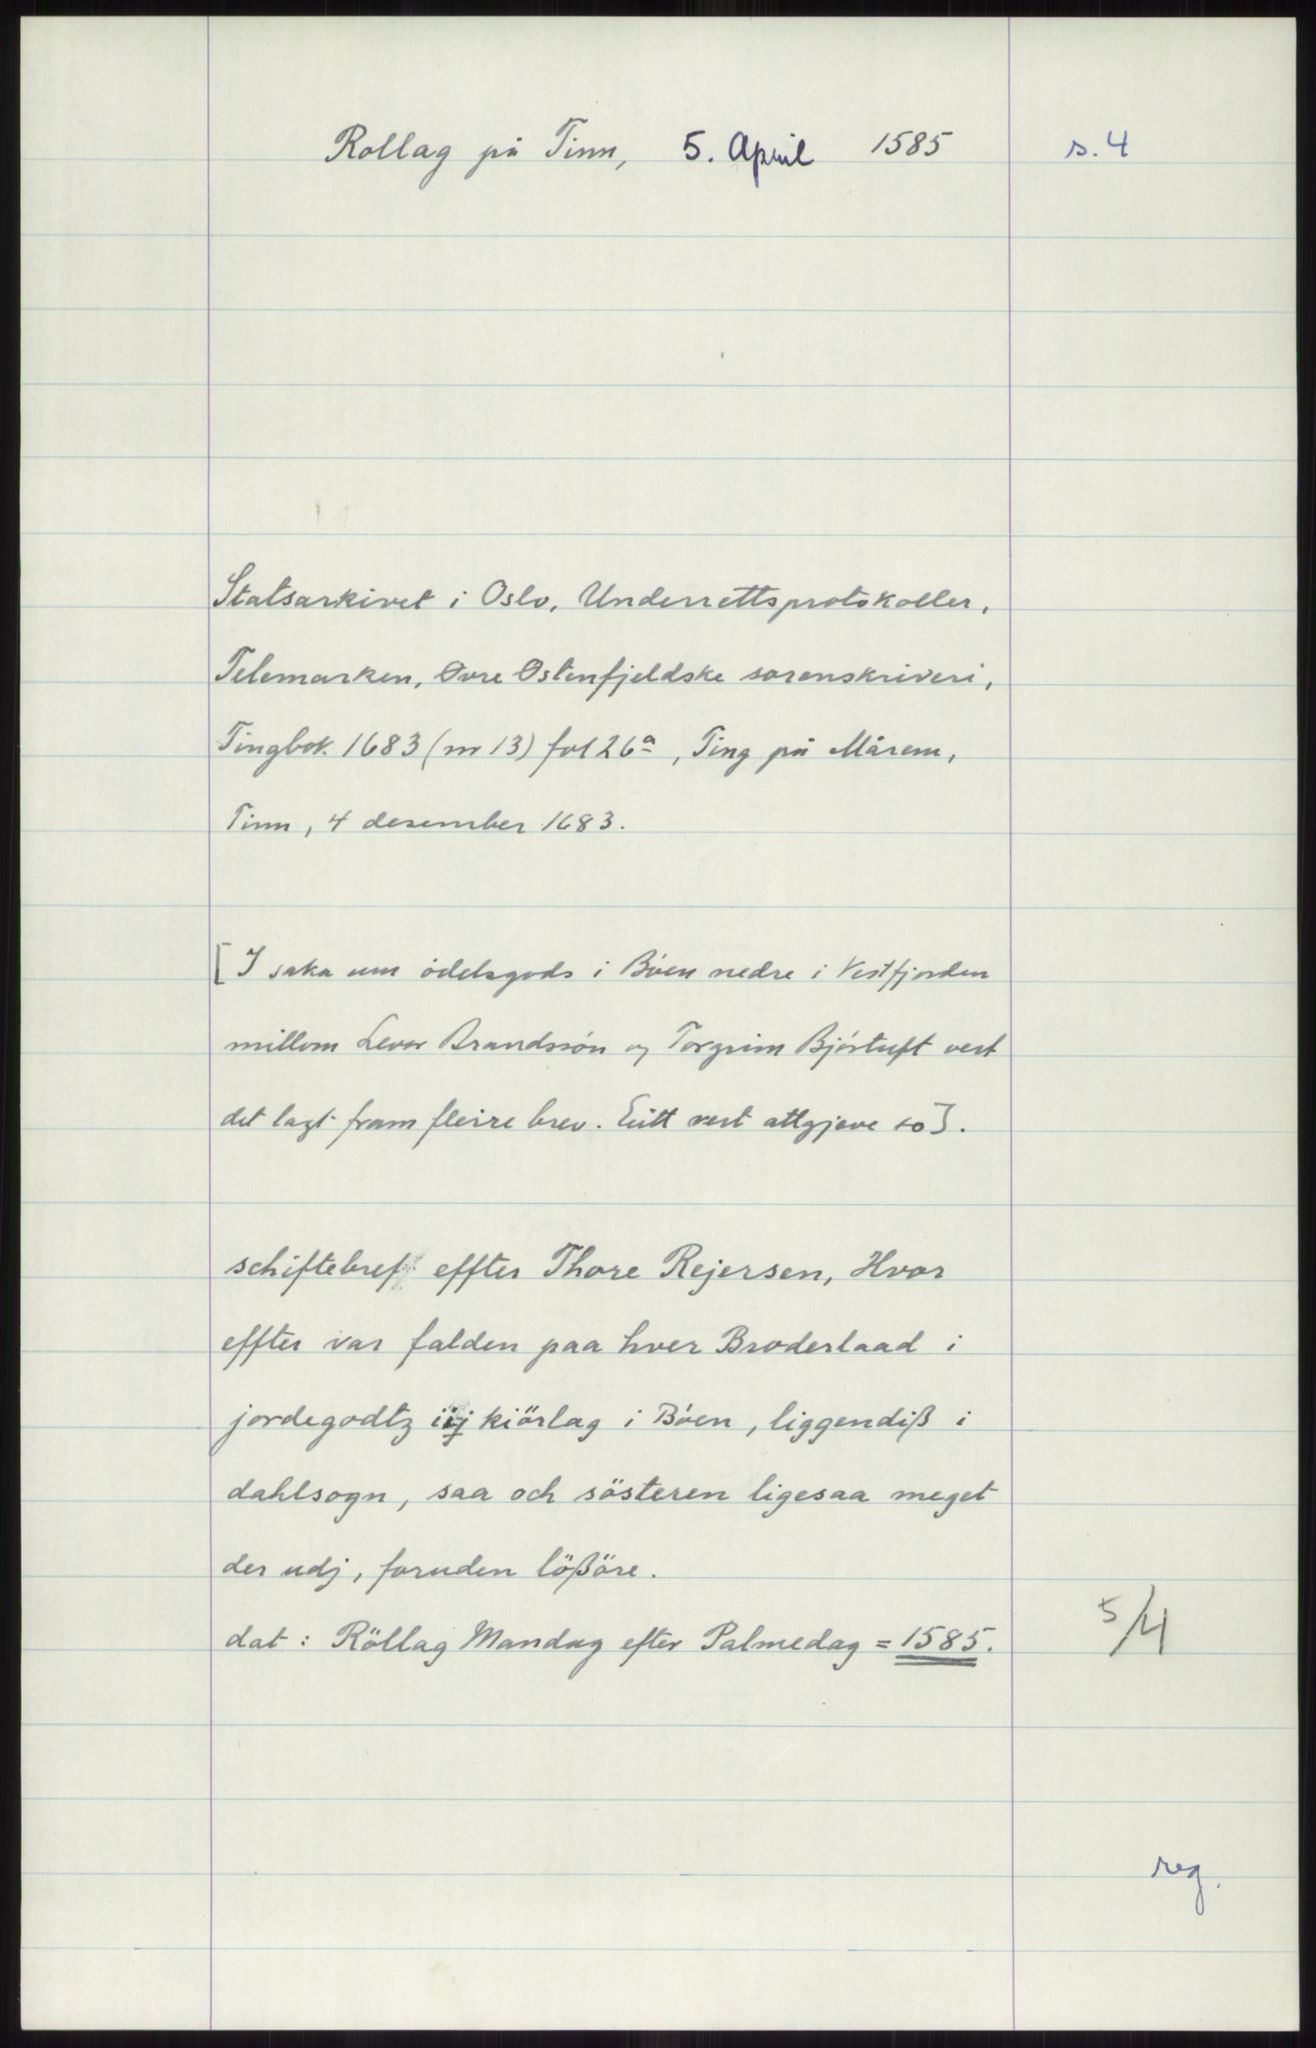 Rollag på Tinn, 5. April 1585 s. 4
Statsarkivet i Oslo, Underrettsprotokoller,
Telemarken, Øvre Østenfjeldske sorenskriveri,
Tingbok 1683 (nr 13) fol 26a, Ting på Mårem,
Tinn, 4 desember 1683.
[I saka um odelsgods i Bøen nedre i Vestfjorden
millom Levor Brandssøn og Torgrim Bjørtuft vert
det lagt fram fleire brev. Eitt vert attgjeve so].
schiftebref effter Thore Rejersen, Hvor
effter var falden paa hver Broderlaad i
jordegodtz iij kiörlag i Bøen, liggendiß i
dahlsogn, saa och sösteren ligesaa meget
der udj, foruden lößöre.
dat: Röllag Mandag efter Palmedag = 1585. 5/4
reg.